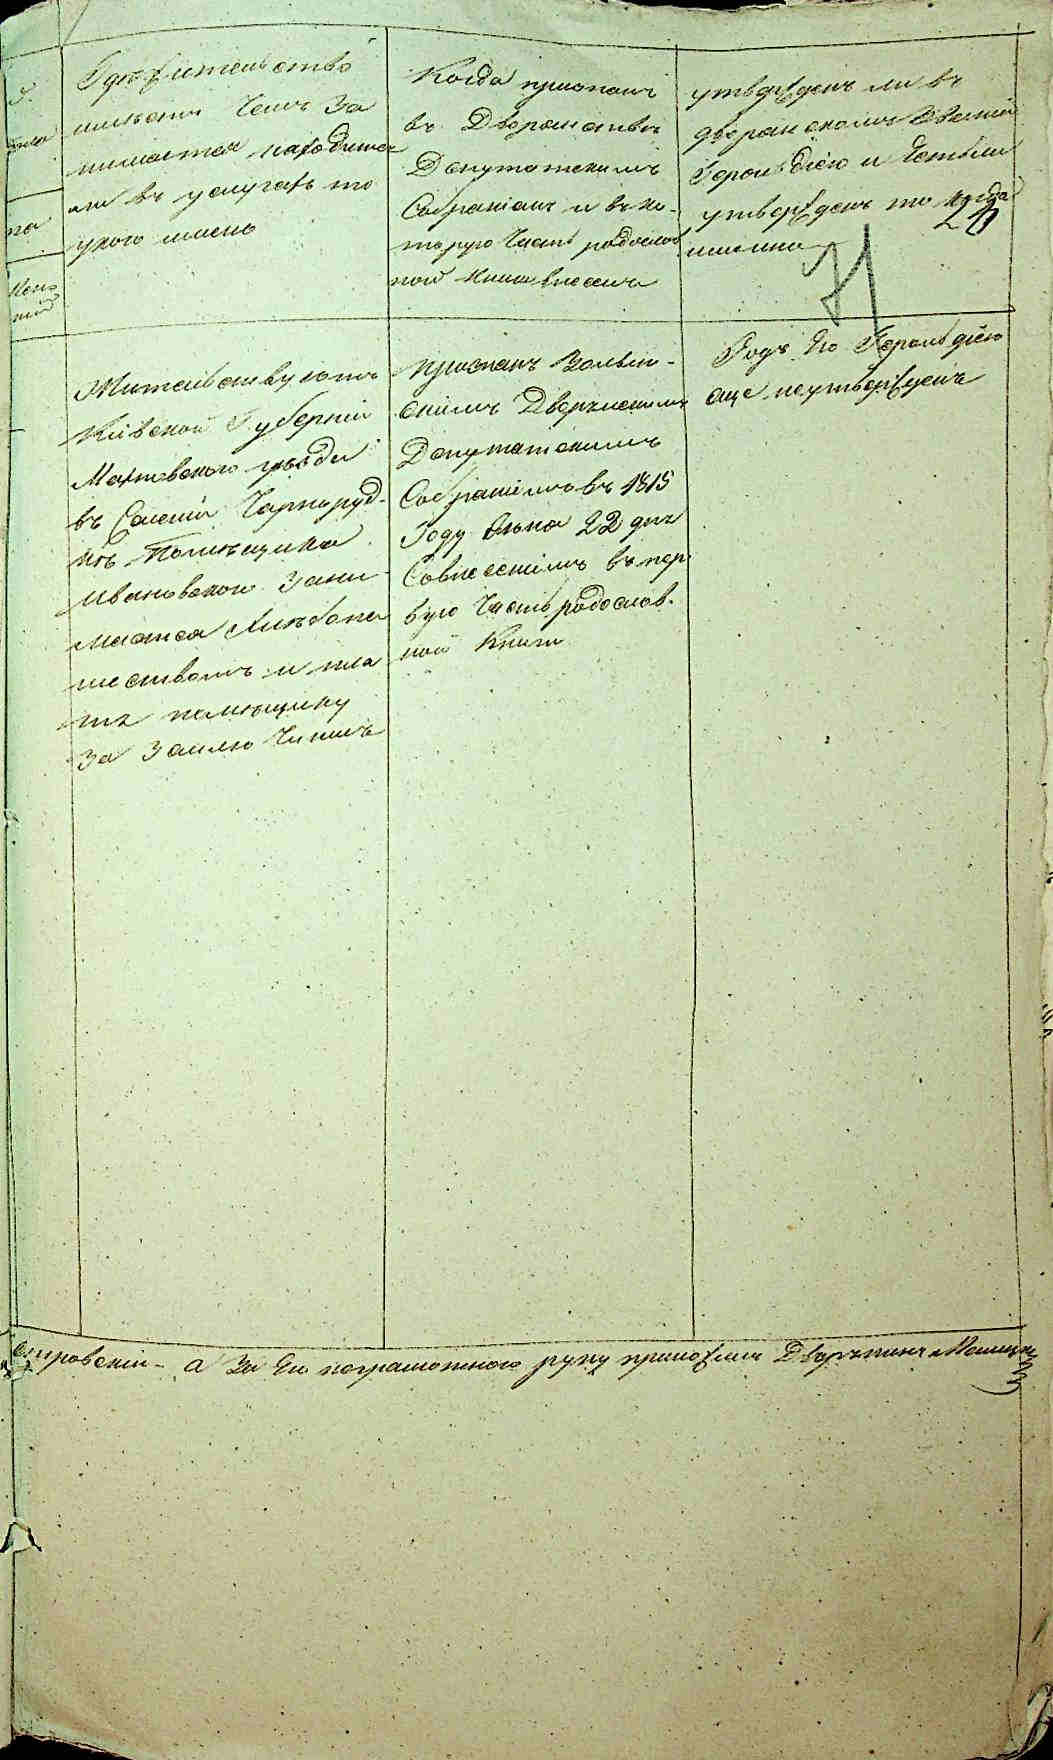 Гдѣ жительство
имѣетъ чемъ за
нимается находится
ли въ услугахъ то
укого имено
Когда признанъ
въ Дворянствѣ
Депутатскимъ
Собраніемъ и въ ко-
торую Часть родослов
ной Книги внесенъ
утвержденъ ли въ
дворянскомъ Званіи
Герольдіею и Естьли
утвержденъ то когда
имянно
21
Жительствуютъ
Кіевской Губерніи
Махновскаго уѣзда
въ Селеніи Чорноруд-
кѣ Помѣщика
Ивановской Зани-
мается Хлѣбопа
шествомъ и пла
тя помѣщику
За Землю Чиншъ
признанъ Волын-
скимъ Дворянскимъ
Депутатскимъ
Собраніемъ въ 1815
Году 22 дня
Совнесеніемъ въ пер
вую Часть родослов-
ной Книги
Родъ Его Герольдіею
еще неутвержденъ
стровскій - а За Его неграмотного руку приложилъ Дворянинъ